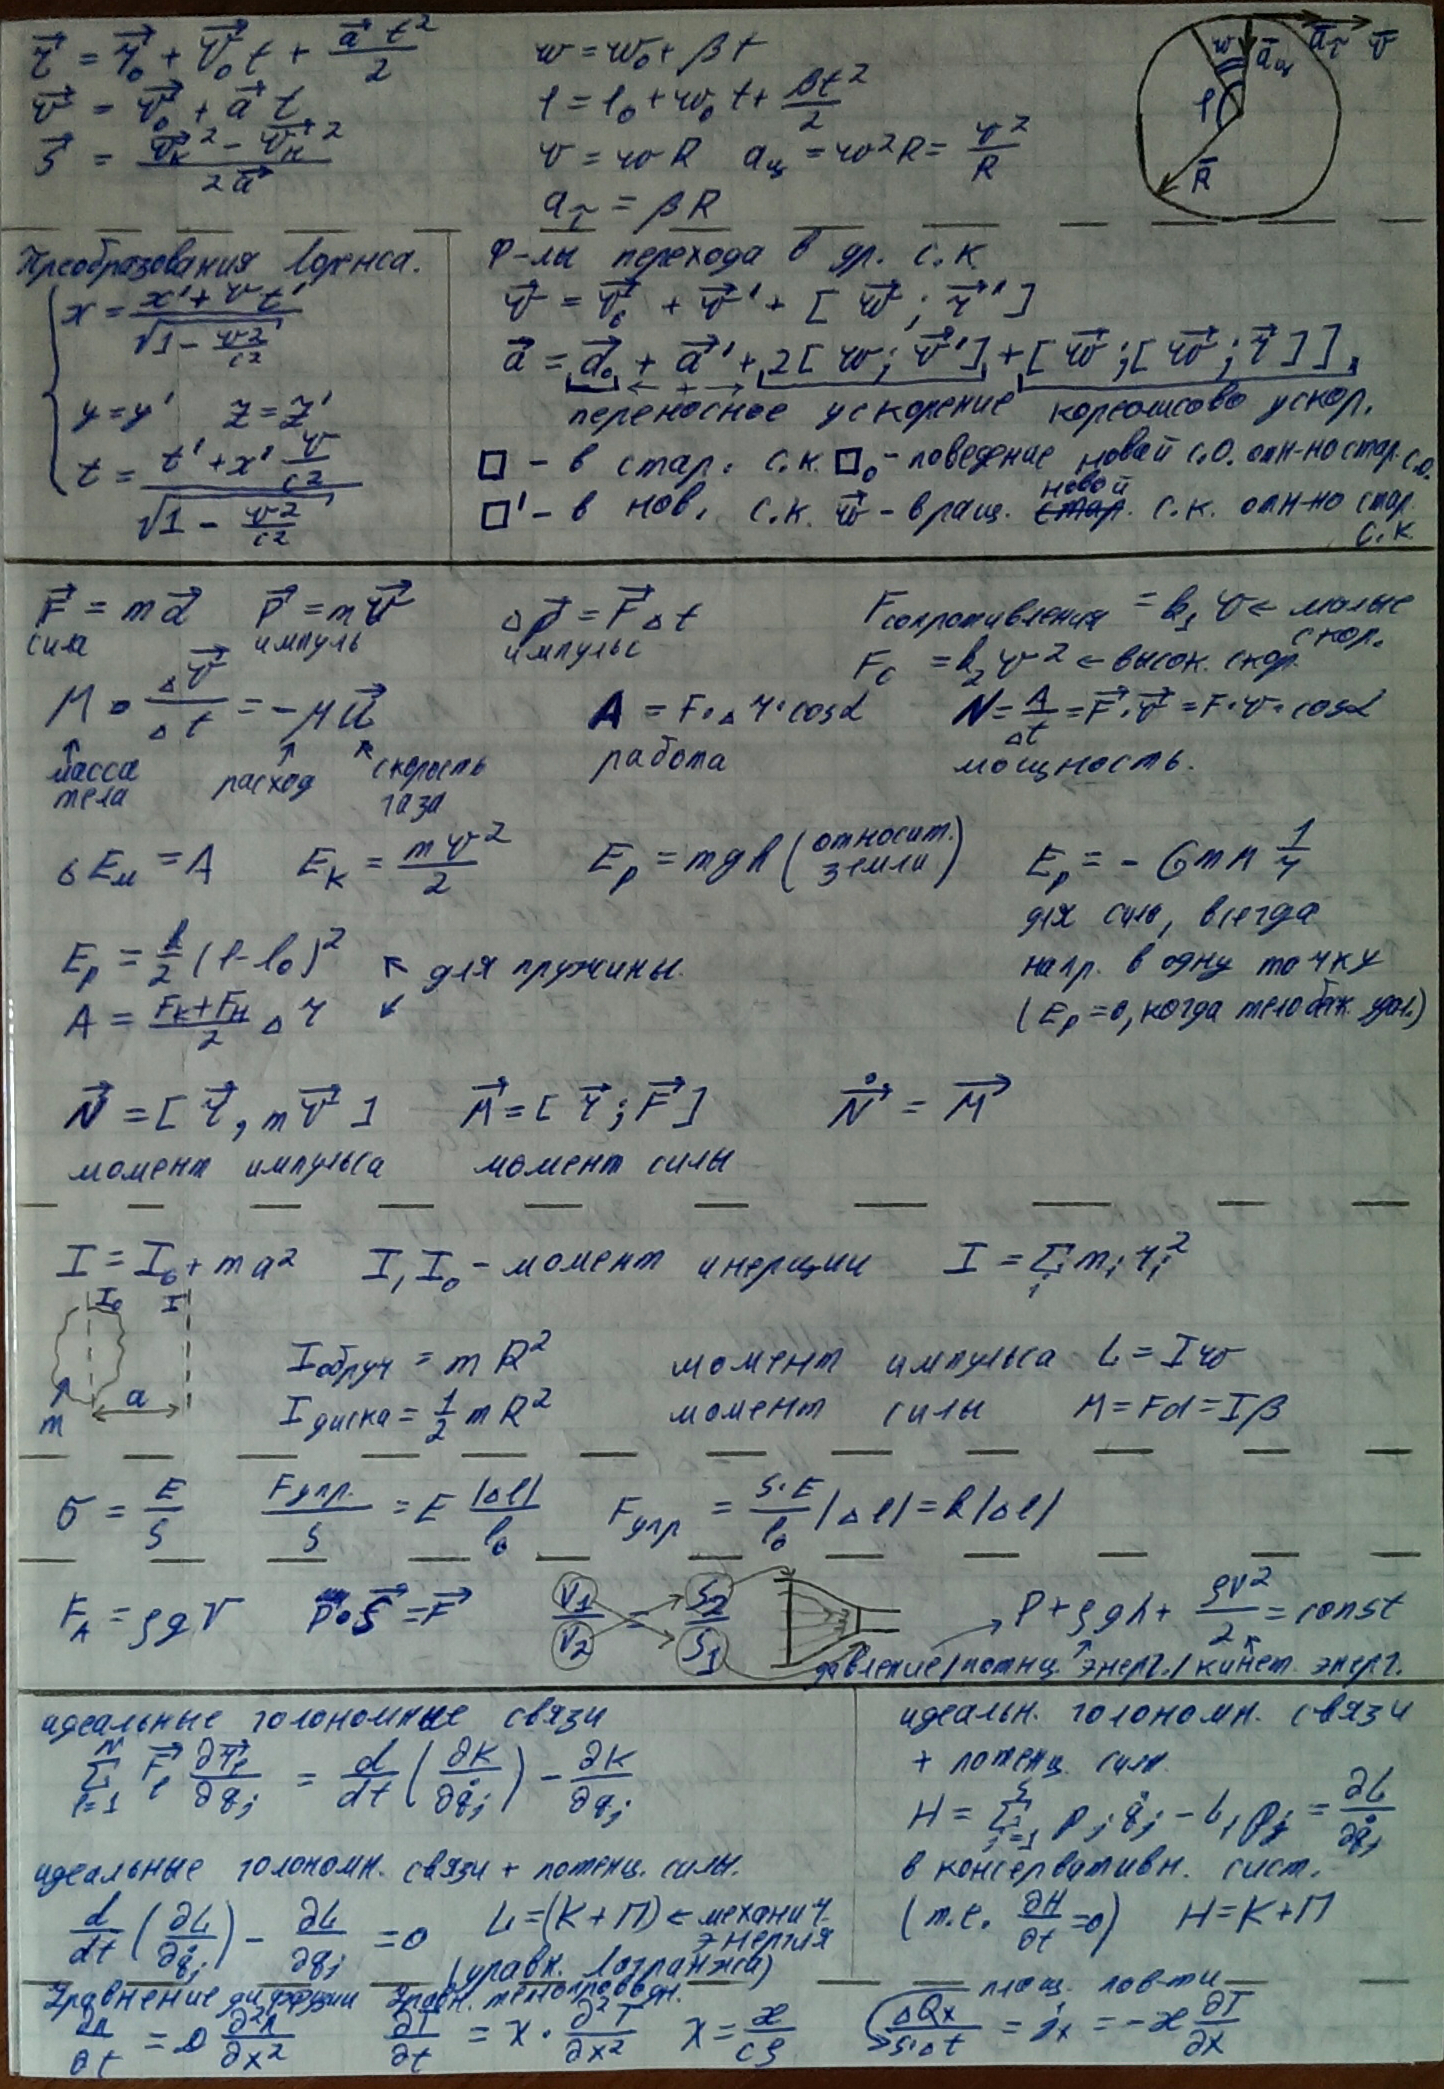 r⃗ = r⃗₀ + v⃗₀t + a⃗t²/2
v⃗ = v⃗₀ + a⃗t
S⃗ = (v⃗к² − v⃗н²)/2a⃗
w = w₀ + βt
φ = φ₀ + w₀t + βt²/2
v = wR   aц = w²R = v²/R
a_τ = βR
w a⃗ц a⃗_τ v⃗
φ
R⃗
Преобразования Лоренса.
x = (x' + vt')/√(1 − v²/c²)
y = y'   z = z'
t = (t' + x' v/c²)/√(1 − v²/c²)
Ф-лы перехода в др. с.к.
v⃗ = v⃗₀ + v⃗' + [w⃗; r⃗']
a⃗ = a⃗₀ + a⃗' + 2[w; v⃗'] + [w⃗; [w⃗; r⃗]]
← + →
переносное ускорение кореолисово ускор.
□ – в стар. с.к. □₀ – поведение новой с.о. отн-но стар. с.о.
□' – в нов. с.к. w⃗ – вращ. новой с.к. отн-но стар. с.к.
F⃗ = ma⃗   P⃗ = mv⃗   Δp⃗ = F⃗Δt   Fсопротивления = k₁v ← малые скор.
сила   импуль   импульс   Fс = k₂v² ← высок. скор.
M · Δv⃗/Δt = −μu⃗   A = F·Δr·cosα   N = A/Δt = F⃗·v⃗ = F·v·cosα
масса тела   расход   скорость газа   работа   мощность.
ΔEм = A   Eк = mv²/2   Eр = mgh (относит. земли)   Eр = − GmM 1/r
для силы, всегда
напр. в одну точку
(Eр = 0, когда тело беск. удал.)
Eр = k/2 (l − l₀)² ↖ для пружины.
A = (Fк + Fн)/2 Δr ↙
N⃗ = [r⃗, mv⃗]   M⃗ = [r⃗; F⃗]   N⃗˙ = M⃗
момент импульса   момент силы
I = I₀ + ma²   I, I₀ – момент инерции   I = Σᵢ mᵢrᵢ²
I₀ I
m a
Iобруч = mR²   момент импульса L = Iw
Iдиска = ½mR²   момент силы M = Fd = Iβ
σ = E/S   Fупр./S = E |Δl|/l₀   Fупр = S·E/l₀ |Δl| = k|Δl|
F_A = ρgV   P·S⃗ = F⃗   V₁/V₂ = S₂/S₁   P + ρgh + ρV²/2 = const
давление/потнц. энерг./кинет. энерг.
идеальные голономные связи
Σ_{l=1}^{N} F⃗_l ∂r⃗_l/∂q_j = d/dt (∂K/∂q̇_j) − ∂K/∂q_j
идеальные голономн. связи + потенц. силы.
d/dt (∂L/∂q̇_j) − ∂L/∂q_j = 0   L = (K + П) ← механич. энергия
(уравн. Логранжа)
идеальн. голономн. связи
+ потенц. силы.
H = Σ_{j=1}^{S} p_j q̇_j − L, p_j = ∂L/∂q̇_j
в консервативн. сист.
(т.е. ∂H/∂t = 0)   H = K + П
Уравнение диффузии   Уравн. теплопроводн.   площ. пов-ти
∂n/∂t = D ∂²n/∂x²   ∂T/∂t = χ · ∂²T/∂x²   χ = æ/cρ   ΔQx/S·Δt = jx = −æ ∂T/∂x